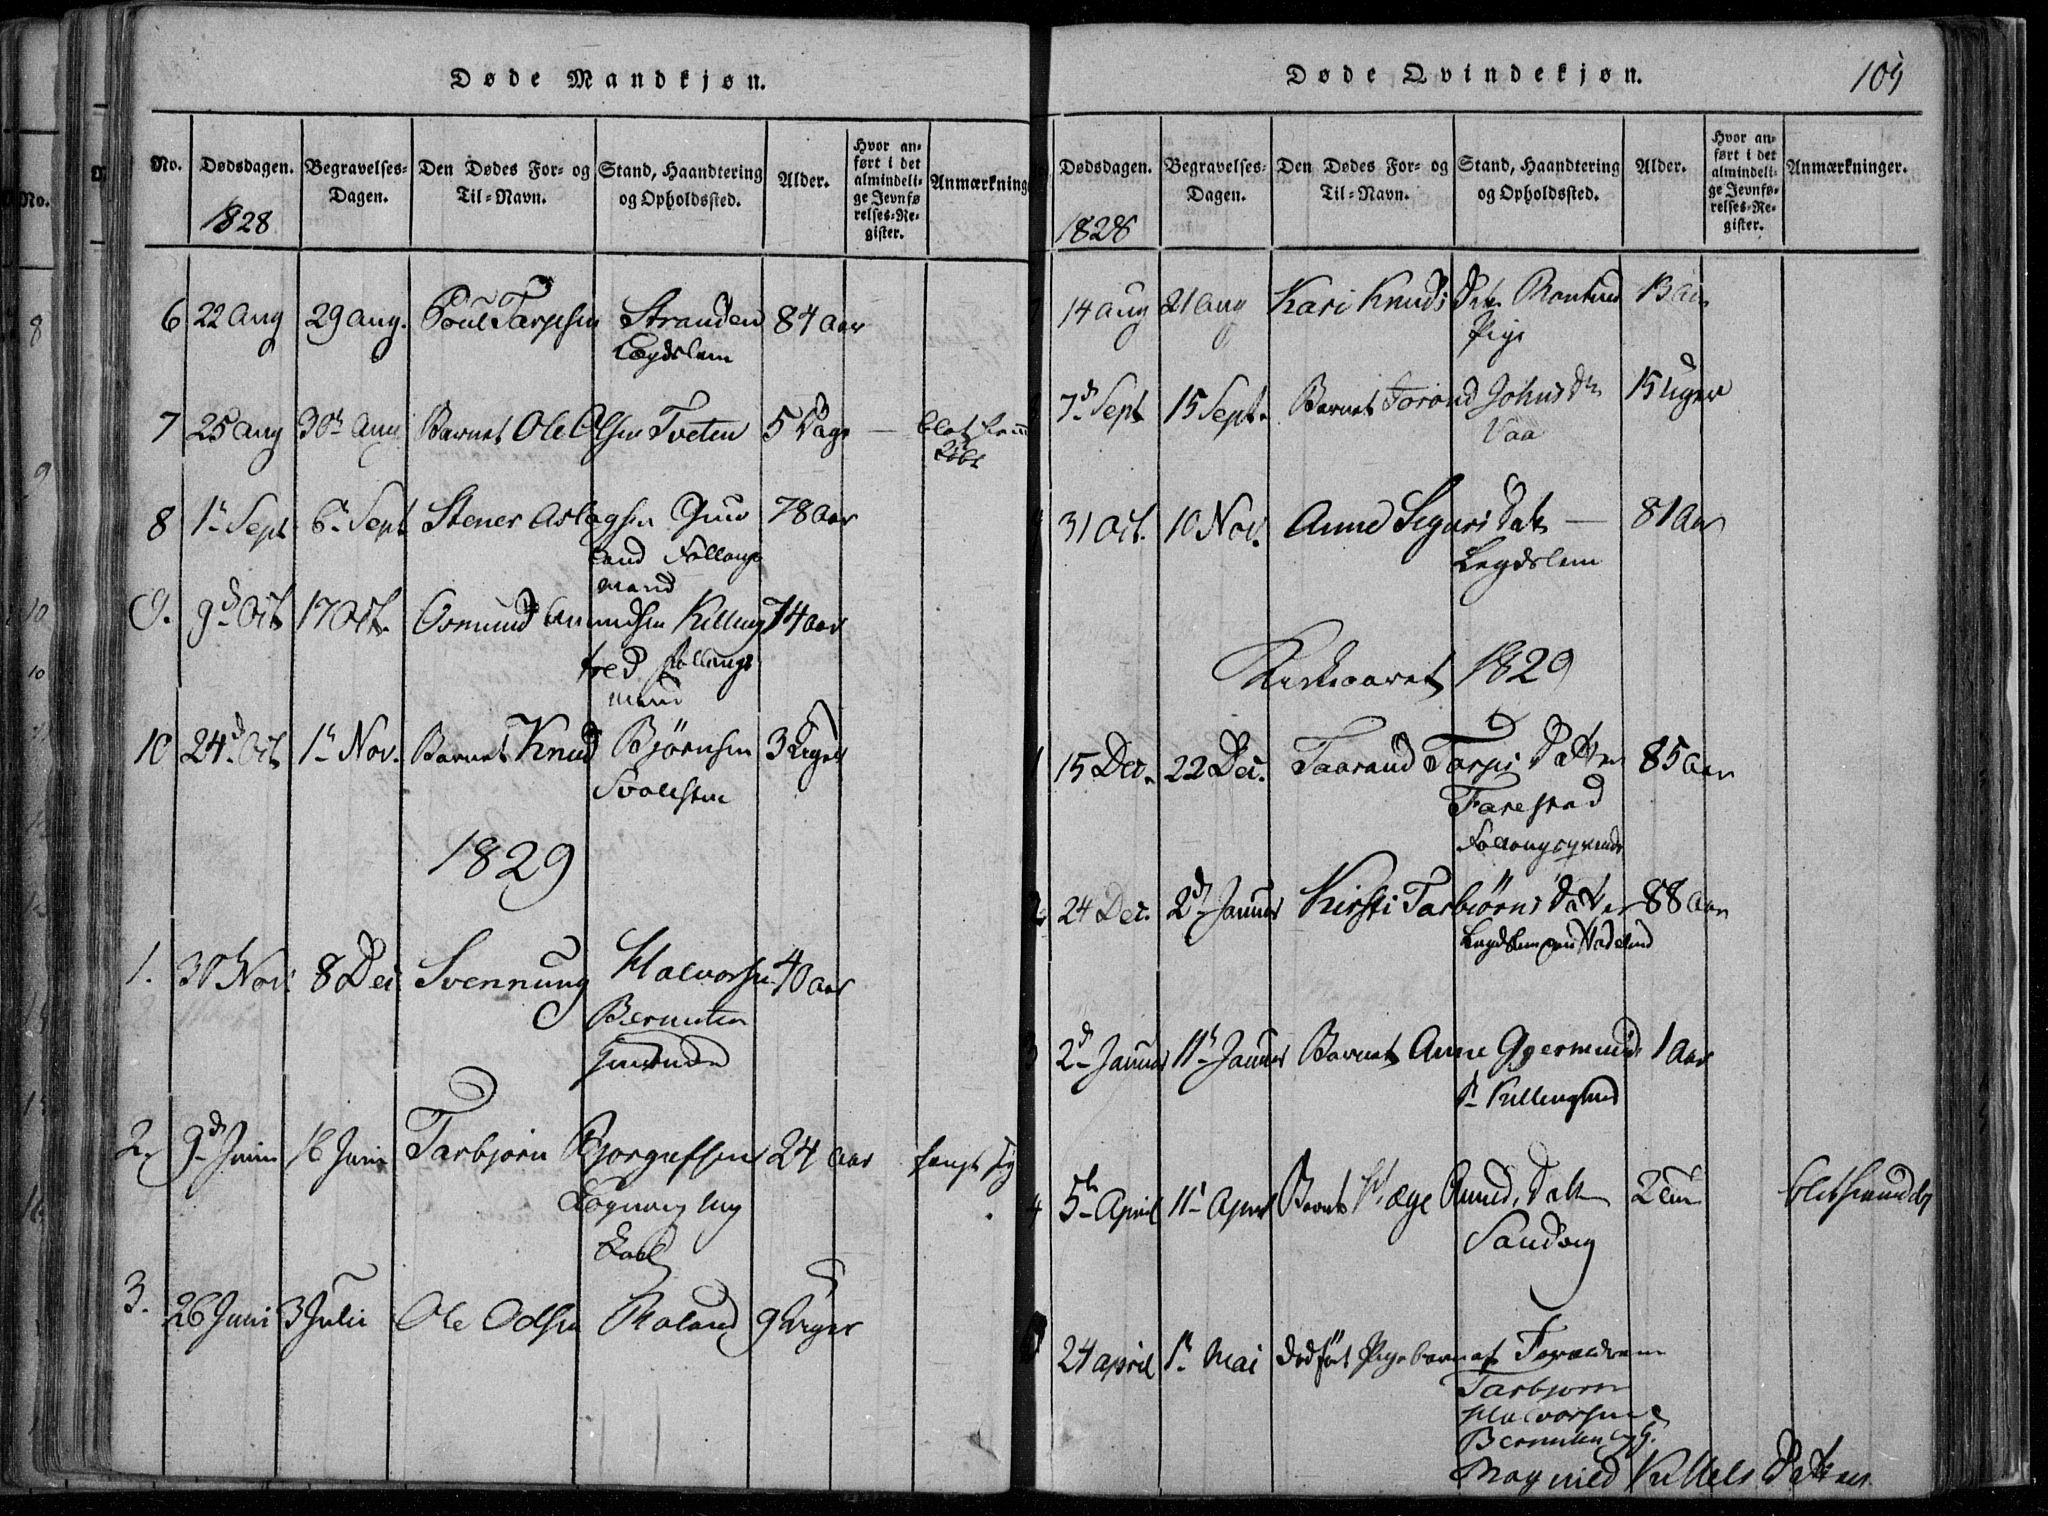 Døde Mandkjøn.
No. Dødsdagen. Begravelses-Dagen. Den Dødes For- og Til-Navn. Stand, Haandtering og Opholdssted. Alder. Hvor anført i det almindelige Jevnførelses-Register. Anmærkning
1828
6 22 Aug 29 Aug. Poul Tarjesen Stranden 84 Aar
Legdslem
7 25 Aug 30 Aug Barnet Ole Olsen Tveten 5 Dage
8 1 Sept 6 Sept Stener Aslagsen 78 Aar
land Follougs
mand
9. 9d Oct 17 Oct. Osmund Amundsen Killing 74 Aar
tved Follougs
mand
10 24d Oct 1 Nov. Barnet Knud Bjørnsen 3 Uger
1829
1. 30 Nov. 8 Dec Svennung Halvorsen 40 Aar
Bernuten
Gaardmand
2. 9d Juni 16 Juni Tarbjørn Bjorgufsen 24 Aar
3. 26 Juni 3 Julii Ole Olsen Roland 9 Uger
Døde Qvindekjøn.
109
Dødsdagen. Begravelses-Dagen. Den Dødes For- og Til-Navn. Stand, Haandtering og Opholdssted. Alder. Hvor anført i det almindelige Jevnførelses-Register. Anmærkninger.
1828
14 Aug 21 Aug Kari Knuds Dat.
Pige
7d Sept 15 Sept. Barnet Torond Johns Dtr 15 Uger
Vaa
31 Oct. 10 Nov. Anne Sigurs Datr 81 Aar
Legdslem
Kirkeaaret 1829
1 15 Dec. 22 Dec. Taarand Tarjes Datter 85 Aar
Follougsqvinde
2 24 Dec. 2d Januar Kirsti Tarbiørns Datter 88 Aar
Legdslem
3 2d Januar 11 Januar Barnet Anne Gjermunds 1 Aar
D. Killingtved
4 5 April 11 April Barnet Hæge Amunds Datter
Sandvig
24 April 1 Mai dødføt Pigebarnet Foreldrene
Tarbjørn
Halvorsen
Bernuten og
Magnild Kittels Datter.